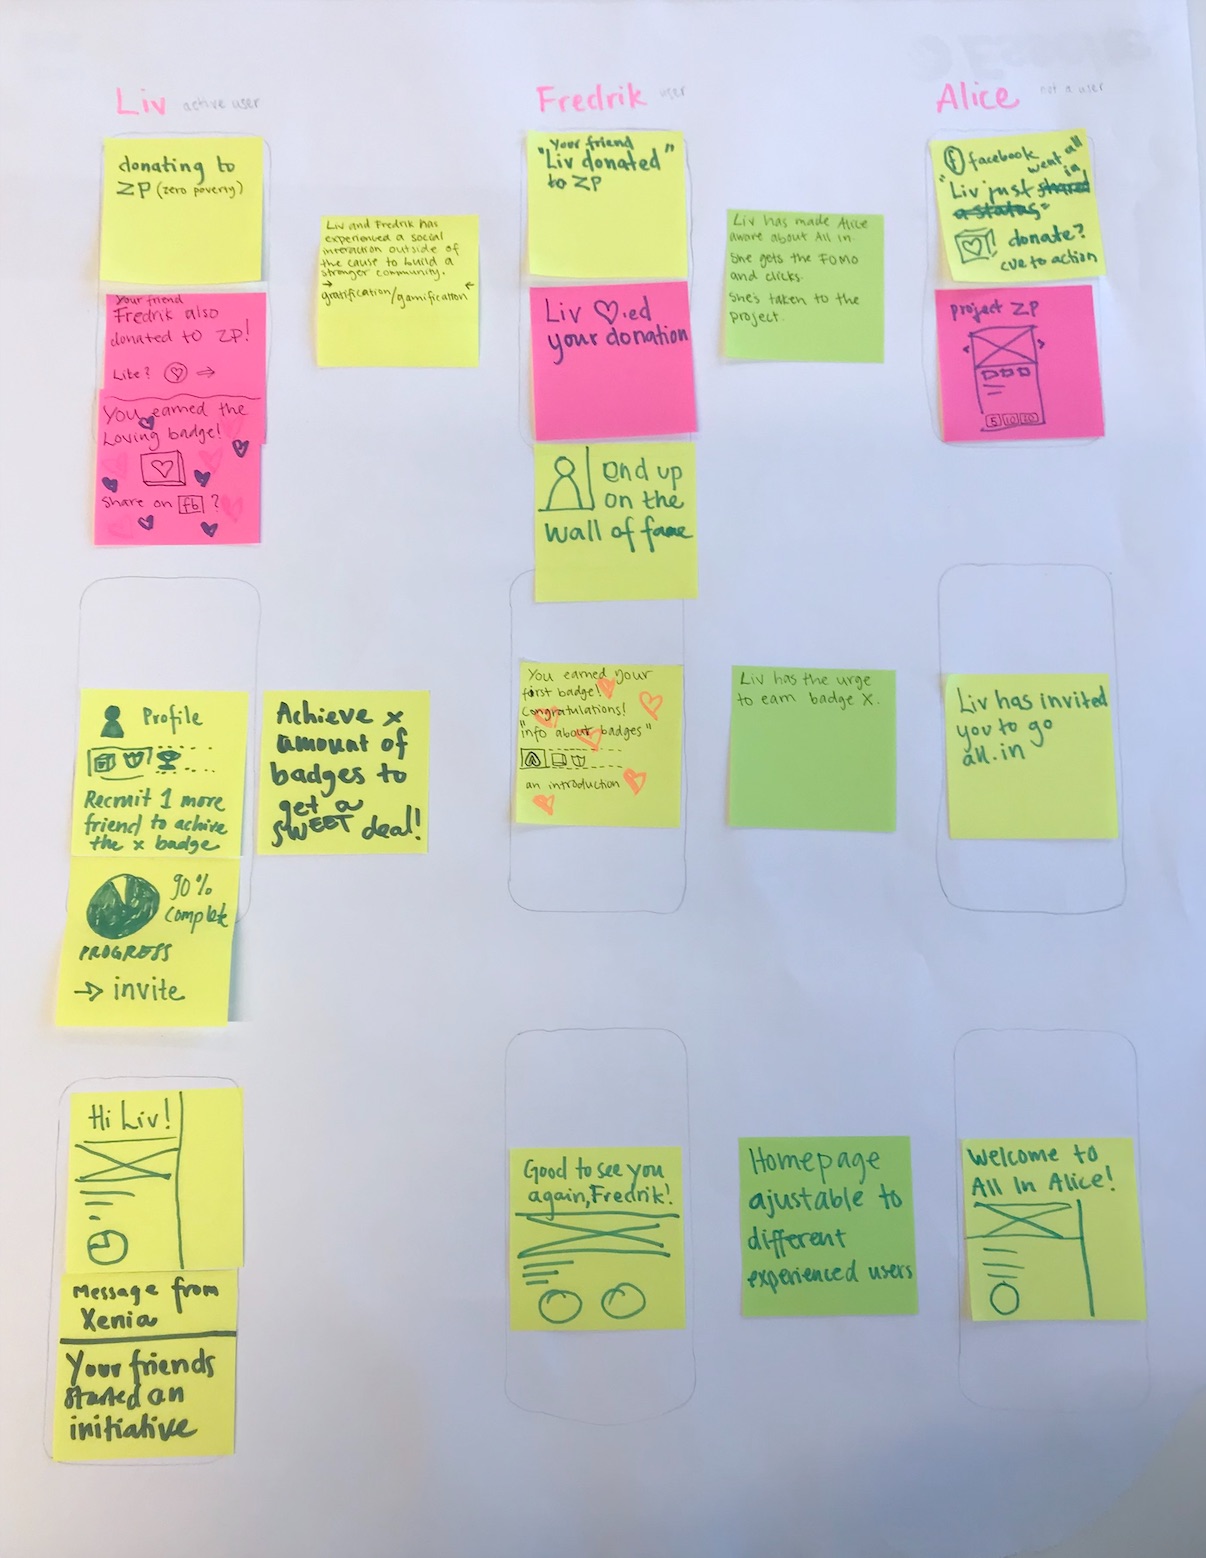 Liv active user
donating to
ZP (zero poverty)
Your friend
Fredrik also
donated to ZP!
Like?
You earned the
Loving badge!
Share on fb ?
Liv and Fredrik has
experienced a social
interaction outside of
the cause to build a
stronger community.
gratification/gamification
Fredrik user
Your friend
"Liv donated"
to ZP
Liv ied
your donation
end up
on the
wall of fame
Liv has made Alice
aware about All in.
She gets the FOMO
and clicks.
She's taken to the
project.
Alice not a user
f facebook
went all
in
"Liv just shared
a status"
donate?
cue to action
project ZP
5 10 20
Profile
Recruit 1 more
friend to achive
the x badge
90%
complete
PROGRESS
→ invite
Achieve x
amount of
badges to
get a
SWEET deal!
You earned your
first badge!
Congratulations!
"info about badges"
an introduction
Liv has the urge
to earn badge X.
Liv has invited
you to go
all.in
Hi Liv!
Message from
Xenia
Your friends
started an
initiative
Good to see you
again, Fredrik!
Homepage
ajustable to
different
experienced users
Welcome to
All In Alice!